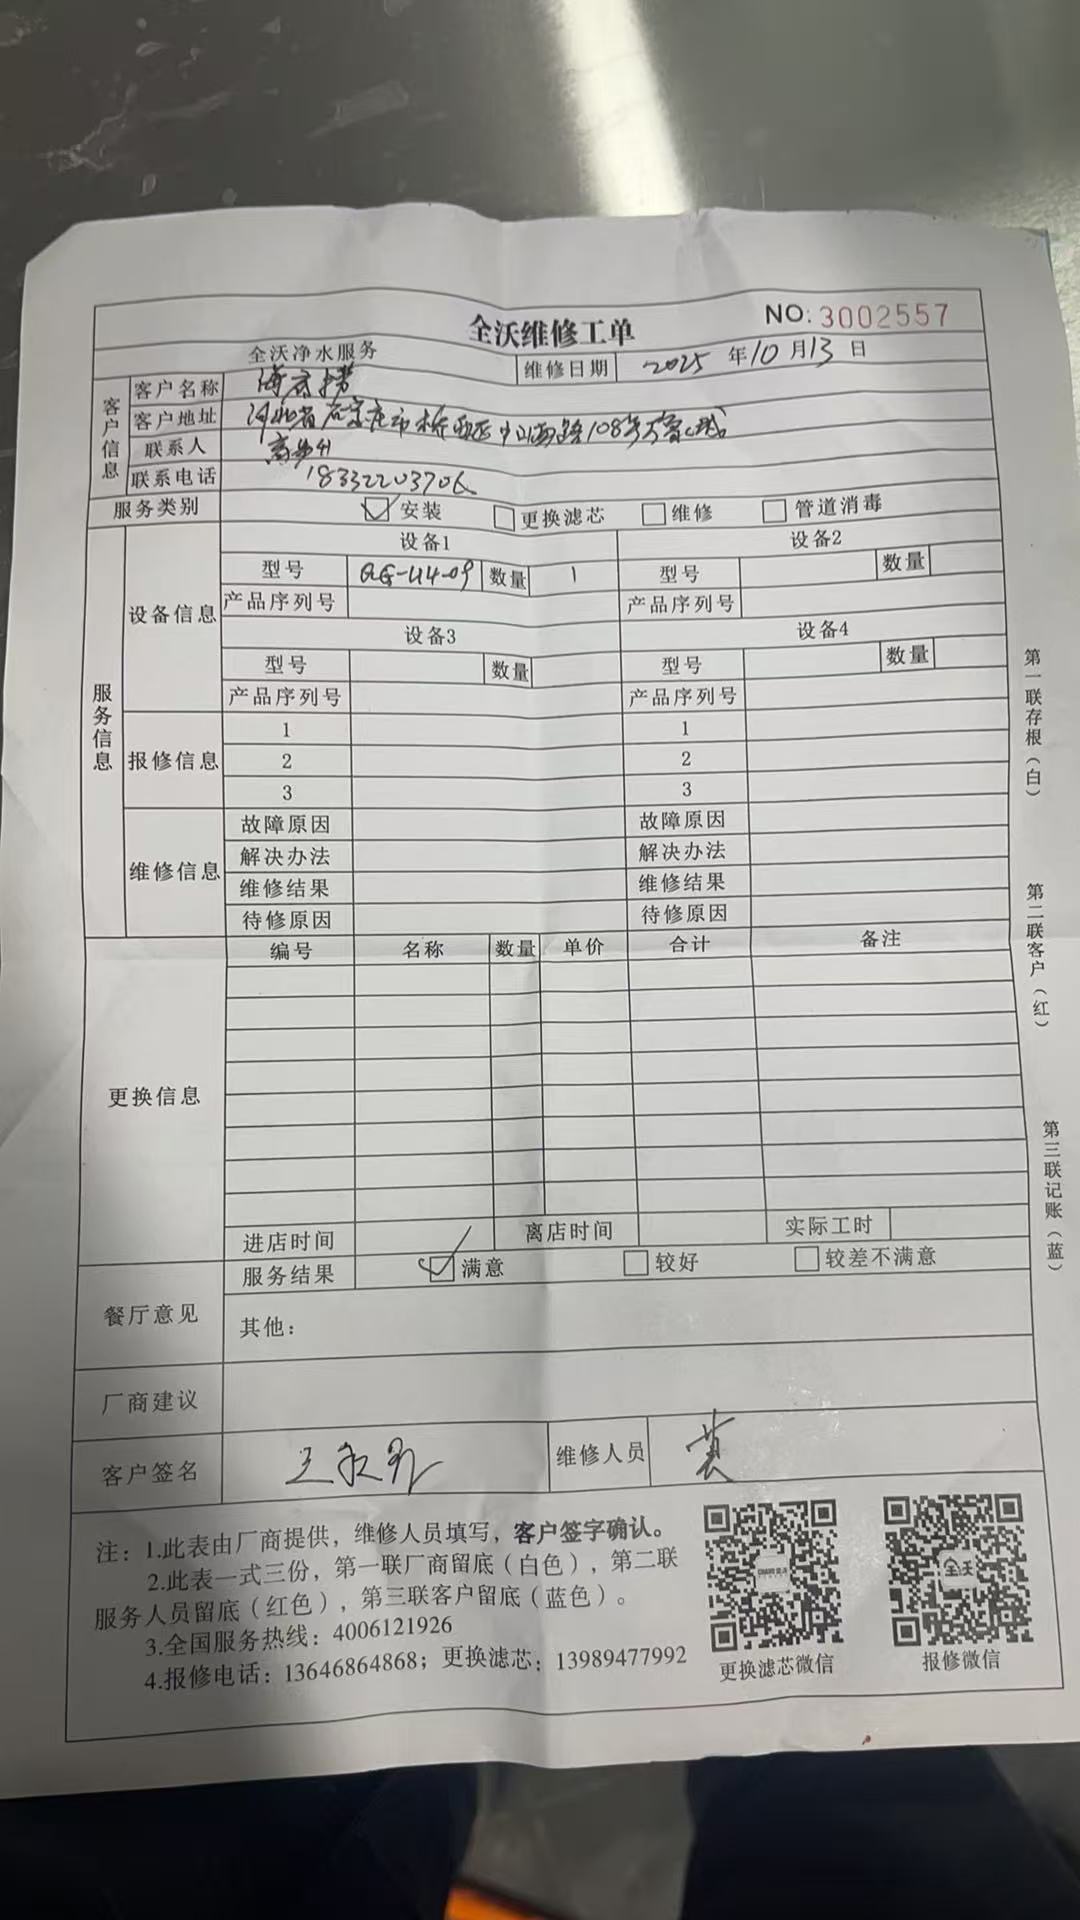 NO: 3002557
全沃维修工单
全沃净水服务 维修日期 2025 年 10 月 13 日
客户信息
客户名称 海底捞
客户地址 河北省石家庄市桥西区中山西路108号万象城
联系人
联系电话 1833220370
服务类别 安装 更换滤芯 维修 管道消毒
服务信息
设备信息
设备1 设备2
型号 数量 1 型号 数量
产品序列号 产品序列号
设备3 设备4
型号 数量 型号 数量
产品序列号 产品序列号
报修信息
1 1
2 2
3 3
维修信息
故障原因 故障原因
解决办法 解决办法
维修结果 维修结果
待修原因 待修原因
更换信息
编号 名称 数量 单价 合计 备注
进店时间 离店时间 实际工时
餐厅意见
服务结果 满意 较好 较差不满意
其他：
厂商建议
客户签名 维修人员
注：1.此表由厂商提供，维修人员填写，客户签字确认。
2.此表一式三份，第一联厂商留底（白色），第二联
服务人员留底（红色），第三联客户留底（蓝色）。
3.全国服务热线：4006121926
4.报修电话：13646864868；更换滤芯：13989477992
更换滤芯微信
全沃
报修微信
第一联存根（白）
第二联客户（红）
第三联记账（蓝）